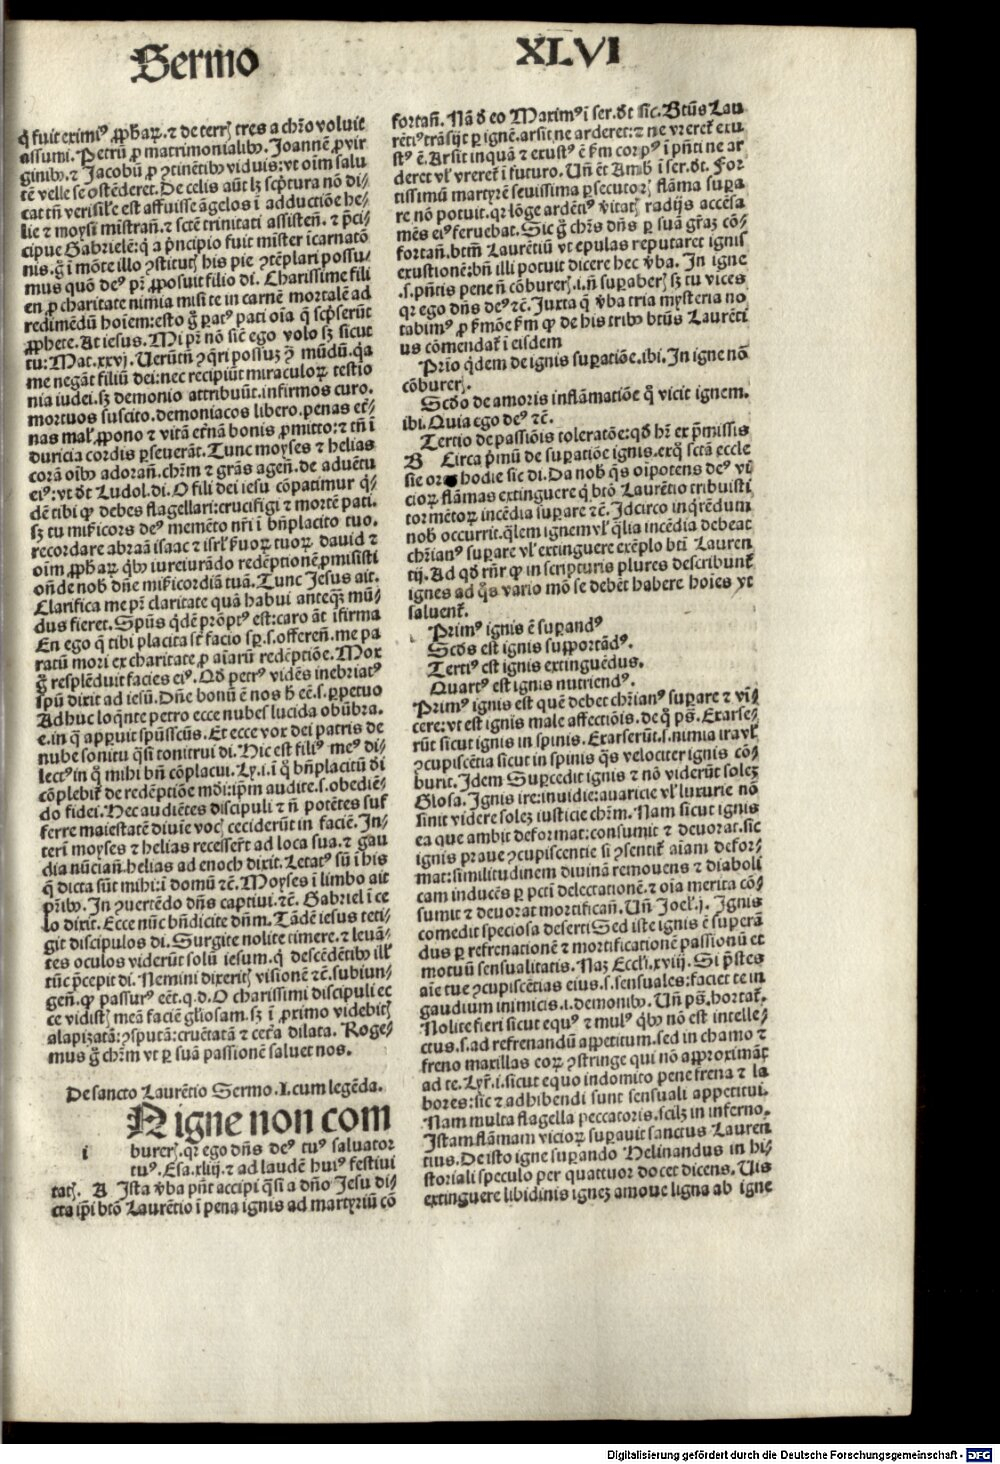 Sermo
XLVI
q̄ fuit eximiꝰ ꝓphaꝝ. ⁊ de terrꝭ tres a chr̄o voluit
assumi. Petrū ꝓ matrimonialibꝰ. Joannē ꝓ vir
ginibꝰ. ⁊ Jacobū ꝓ ꝯtinētibꝰ viduis: vt oīm salu
tē velle se ostēderet. De celis aūt lꝫ scp̄tura nō di⸗
cat tn̄ verisiľe est affuisse āgelos ī adductiōe he⸗
lie ⁊ moysi mīstran̄. ⁊ sct̄e trinitati assisten̄. ⁊ p̄ci⸗
cipue Gabrielē: q̄ a p̄ncipio fuit mīster īcarnatō
nis. ḡ ī mōte illo ꝯstitutꝭ his pie ꝯtēplari possu⸗
mus quō deꝰ pr̄ ꝓposuit filio di. Charissime fili
en ꝓ charitate nimia misi te in carnē mortalē ad
redimēdū hoīem: esto ḡ ꝑatꝰ pati oīa q̄ scp̄serūt
ꝓphete. At iesus. Mi pr̄ nō sic̄ ego volo sꝫ sicut
tu: Mat. xxvj. Uerūtn̄ ꝯq̄ri possuꝫ ꝯ̄ mūdū. q̄a
me negāt filiū dei: nec recipiūt miraculoꝝ testio
nia iudei. sꝫ demonio attribuūt. infirmos curo.
mortuos suscito. demoniacos libero. penas et̄⸗
nas mal̄ ꝓpono ⁊ vitā et̄nā bonis ꝓmitto: ⁊ tn̄ ī
duricia cordis ꝑseverāt. Tunc moyses ⁊ helias
corā oībꝰ adoran̄. chr̄m ⁊ grās agen̄. de advētu
eiꝰ: vt dt̄ Ludol. di. O fili dei iesu cōpatimur q̄⸗
dē tibi qꝫ debes flagellari: crucifigi ⁊ mortē pati.
sꝫ tu mīcors deꝰ memēto nr̄i ī bn̄placito tuo.
recordare abraā isaac ⁊ isrl̄ ẜuoꝝ tuoꝝ. david ⁊
oīm ꝓphaꝝ qb̄ꝰ iureiurādo redēptionē ꝓmisisti
on̄de nob̄ dn̄e mīcordiā tuā. Tunc Jesus ait.
Clarifica me pr̄ claritate quā habui anteqꝫ mū⸗
dus fieret. Spūs qdē prōptꝰ est: caro āt īfirma
En ego q̄ tibi placita st̄ facio sꝑ. s. offeren̄. me pa
ratū mori ex charitate ꝓ aīarū redēptiōe. Mox
ḡ resplēduit facies eiꝰ. Qd̄ petrꝰ vidēs inebriatꝰ
spū dixit ad iesū. Dn̄e bonū ē nos h̄ eē. s. ꝑpetuo
Adhuc loq̄nte petro ecce nubes lucida obūbra.
e. in q̄ apꝑuit spūsscūs. Et ecce vox dei patris de
nube sonitu qsi tonitrui di. Hic est filiꝰ meꝰ di⸗
lectꝰ in q̄ mihi bn̄ cōplacui. Ly. i. ī q̄ bn̄placitū di
cōplebit̄ de redēptiōe mōi: ip̄m audite. s. obediē⸗
do fidei. Hec audiētes discipuli ⁊ n̄ potētes suf
ferre maiestatē diuīe vocꝭ ceciderūt in faciē. In⸗
teri moyses ⁊ helias recesser̄t ad loca sua. ⁊ gau
dia nūcian̄. helias ad enoch dixit. Letatꝰ sū ī his
q̄ dicta sūt mihi: ī domū ⁊c̄. Moyses ī limbo ait
pr̄ibꝰ. In ꝯuertēdo dn̄s captiui. ⁊c̄. Gabriel ī ce
lo dixit. Ecce nūc bn̄dicite dn̄m. Tādē iesus teti⸗
git discipulos di. Surgite nolite timere. ⁊ levā⸗
tes oculos viderūt solū iesum. q̄ descēdētibꝰ ill̄
tūc p̄cepit di. Nemini dixeritꝭ visionē ⁊c̄. subiun⸗
gen̄. qꝫ passurꝰ eēt. q. d. O charissimi discipuli ec
ce vidistꝭ meā faciē gl̄iosam. sꝫ ī ꝓximo videbitꝭ
alapizatā: ꝯsputā: cruētatā ⁊ cet̄a dilata. Roge⸗
mus ḡ chr̄m vt ꝑ suā passionē saluet nos.
De sancto Laurētio Sermo. I. cum legēda.
N igne non com
i burerꝭ. qꝛ ego dn̄s deꝰ tuꝰ saluator
tuꝰ. Esa. xliij. ⁊ ad laudē huiꝰ festiui
tatꝭ. A Ista v̄ba pn̄t accipi qsi a dn̄o Jesu di⸗
cta ip̄i btō Laurētio ī pena ignis ad martyriū cō
fortan̄. Nā d̄ eo Maximꝰ ī ser. dt̄ sic̄. Btūs Lau
rētiꝰ trāsijt ꝑ ignē. arsit ne arderet: ⁊ ne vreret̄ exu
stꝰ ē. Arsit inquā ⁊ exustꝰ ē ẜm corpꝰ ī pn̄ti ne ar
deret vl̄ vreret̄ ī futuro. Un̄ ēt Amb̄ ī ser. dt̄. For
tissimū martyrē seuissima ꝑsecutorꝭ flāma suꝑa
re nō potuit. qꝛ lōge ardētiꝰ v̄itatꝭ radijs accēsa
mēs eiꝰ feruebat. Sic ḡ chr̄s dn̄s ꝑ suā gr̄aꝫ cō⸗
fortan̄. btm̄ Laurētiū vt epulas reputaret ignis
exustionē: bn̄ illi potuit dicere hec v̄ba. In igne
. s. pn̄tis pene n̄ cōburerꝭ. i. n̄ suꝑaberꝭ sꝫ tu vices
qꝛ ego dn̄s deꝰ ⁊c̄. Juxta q̄ v̄ba tria mysteria no
tabimꝰ ꝓ ẜmōe ẜm qꝫ de his tribꝰ btūs Laurēti
us cōmendat̄ ī eisdem
Prīo qdem de ignis suꝑatiōe. ibi. In igne nō
cōburerꝭ.
Scd̄o de amoris inflāmatiōe q̄ vicit ignem.
ibi. Quia ego deꝰ ⁊c̄.
Tertio de passiōis toleratōe: qd̄ hr̄ ex p̄missis
B Circa p̄mū de suꝑatiōe ignis. exq̄ sctā eccle
sie or hodie sic di. Da nob̄ qs oīpotens deꝰ vi
cioꝝ flāmas extinguere q̄ btō Laurētio tribuisti
tormētoꝝ incēdia suꝑare ⁊c̄. Idcirco inq̄rēdum
nob̄ occurrit. qlem ignem vl̄ qlia incēdia debeat
chr̄ianꝰ suꝑare vl̄ extinguere exēplo bti Lauren
tij. Ad qd̄ rn̄r qꝫ in scripturis plures describunt̄
ignes ad q̄s vario mō se debēt habere hoīes vt
saluent̄.
Primꝰ ignis ē suꝑandꝰ
Scd̄s est ignis supportādꝰ.
Tertiꝰ est ignis extinguēdus.
Quartꝰ est ignis nutriendꝰ.
Primꝰ ignis est quē debet chr̄ianꝰ suꝑare ⁊ vī⸗
cere: vt est ignis male affectiōis. de q̄ pš. Exarse⸗
rūt sicut ignis in spinis. Exarserūt. s. nimia ira vl̄
ꝯcupiscētia sicut in spinis q̄s velociter ignis cō⸗
burit. Idem Suꝑcedit ignis ⁊ nō viderūt soleꝫ
Glosa. Ignis ire: inuidie: auaricie vl̄ luxurie nō
sinit videre soleꝫ iusticie chr̄m. Nam sicut ignis
ea que ambit deformat: consumit ⁊ deuorat. sic
ignis praue ꝯcupiscentie si ꝯsentit̄ aīam defor⸗
mat: similitudinem diuinā remouens ⁊ diaboli
cam inducēs ꝑ pcti delectationē. ⁊ oīa merita cō⸗
sumit ⁊ deuorat mortifican̄. Un̄ Joel̄. j. Ignis
comedit speciosa deserti Sed iste ignis ē suꝑan
dus ꝑ refrenationē ⁊ mortificationē passionū et
motuū sensualitatis. Naꝫ Eccl̄i. xviij. Si p̄stes
aīe tue ꝯcupiscētias eius. s. sensuales: faciet te in
gaudium inimicis. i. demonibꝰ. Un̄ pš. hortat̄.
Nolite fieri sicut equꝰ ⁊ mulꝰ qb̄ꝰ nō est intelle⸗
ctus. s. ad refrenandū appetitum. sed in chamo ⁊
freno maxillas eoꝝ ꝯstringe qui nō approximāt
ad te. Lyr̄. i. sicut equo indomito pene frena ⁊ la
bores: sic ⁊ adhibendi sunt sensuali appetitui.
Nam multa flagella peccatoris. scilꝫ in inferno.
Istam flāmam vicioꝝ suꝑauit sanctus Lauren̄
tius. De isto igne suꝑando Helinandus in hi⸗
storiali speculo per quattuor docet dicens. Uis
extinguere libidinis igneꝫ amoue ligna ab igne
Digitalisierung gefördert durch die Deutsche Forschungsgemeinschaft - DFG